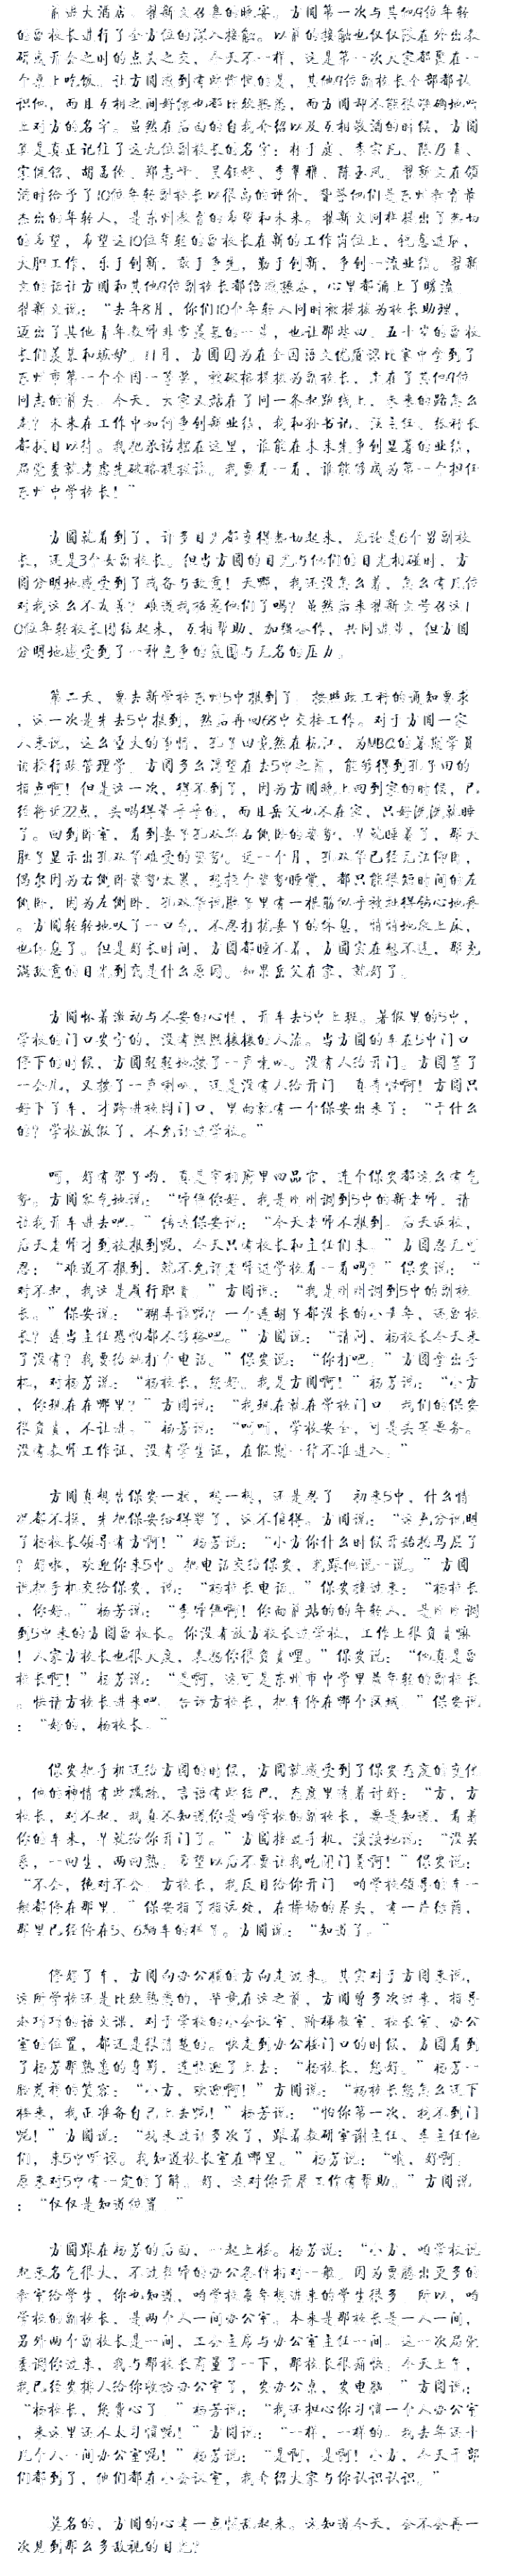 前进大酒店，翟新文召集的晚宴。方圆第一次与其他9位年轻
的副校长进行了全方位的深入接触。以前的接触也仅仅限在外出教
研或开会之时的点头之交，今天不一样，这是第一次大家都聚在一
个桌上吃饭。让方圆感到有些惭愧的是，其他9位副校长全部都认
识他，而且互相之间好像也都比较熟悉，而方圆却不能很准确地叫
上对方的名字。虽然在后面的自我介绍以及互相敬酒的时候，方圆
算是真正记住了这九位副校长的名字：
翟新文在领
酒时给予了10位年轻副校长以很高的评价，
杰出的年轻人，是东州教育的希望和未来。翟新文同样提出了殷切
的希望，希望这10位年轻的副校长在新的工作岗位上，锐意进取，
大胆工作，乐于创新，敢于争先，勤于创新，争创一流业绩。翟新
文的话让方圆和其他9位副校长都倍感振奋，心里都涌上了暖流
翟新文说：“去年8月，你们10个年轻人同时被提拔为校长助理，
迈出了其他青年教师非常羡慕的一步，也让那些四、五十岁的副校
长们羡慕和嫉妒。11月，方圆因为在全国语文优质课比赛中拿到了
东州市第一个全国一等奖，被破格提拔为副校长，走在了其他9位
同志的前头。今天，大家又站在了同一条起跑线上，未来的路怎么
走？未来在工作中如何争创新业绩，我和孙书记、
都拭目以待。我把承诺摆在这里，谁能在未来先争创显著的业绩，
局党委就考虑先破格提拔谁。我要看一看，谁能够成为第一个担任
东州中学校长！”
方圆就看到了，许多目光都变得热切起来，无论是6个男副校
长，还是3个女副校长。但当方圆的目光与他们的目光相碰时，方
圆分明地感受到了戒备与敌意！天啊，我还没怎么着，怎么有几位
对我这么不友善？难道我招惹他们了吗？虽然后来翟新文号召这1
0位年轻校长团结起来，互相帮助，加强合作，共同进步，但方圆
分明地感受到了一种竞争的氛围与无名的压力。
第二天，要去新学校东州5中报到了。按照政工科的通知要求
，这一次是先去5中报到，然后再回68中交接工作。对于方圆一家
人来说，这么重大的事情，孔子田竟然在杭江，为MBA的暑期学员
讲授行政管理学。方圆多么渴望在去5中之前，能够得到孔子田的
指点啊！但是这一次，得不到了，因为方圆晚上回到家的时候，已
经将近22点，头喝得晕乎乎的，而且岳父也不在家，只好洗洗就睡
了。回到卧室，看到妻子孔双华右侧卧的姿势，早就睡着了，那大
肚子显示出孔双华难受的姿势。近一个月，孔双华已经无法仰卧，
偶尔因为右侧卧姿势太累，想换个姿势睡觉，都只能很短时间的左
侧卧，因为左侧卧，孔双华说肚子里有一根筋似乎被扯得钻心地疼
。方圆轻轻地叹了一口气，不忍打扰妻子的休息，悄悄地爬上床，
也休息了。但是好长时间，方圆都睡不着，方圆实在想不透，那充
满敌意的目光到底是什么原因。如果岳父在家，就好了。
方圆怀着激动与不安的心情，开车去5中上班。暑假里的5中，
学校的门口安宁的，没有熙熙攘攘的人流。当方圆的车在5中门口
停下的时候，方圆轻轻地按了一声喇叭。没有人给开门。方圆等了
一会儿，又按了一声喇叭，还是没有人给开门。真奇怪啊！方圆只
好下了车，才跨进校园门口，里面就有一个保安出来了：“干什么
的？学校放假了，不允许进学校。”
呵，好有架子哟，真是宰相府里四品官，连个保安都这么有气
势。方圆客气地说：“师傅你好，我是刚刚调到5中的新老师，请
让我开车进去吧。”
保安说：“今天老师不报到。后天返校，
后天老师才到校报到呢，今天只有校长和主任们来。”方圆忍无可
忍：“难道不报到，就不允许老师进学校看一看吗？”保安说：“
对不起，我这是履行职责。”方圆说：“我是刚刚调到5中的副校
长。”保安说：“糊弄谁呢？一个连胡子都没长的小青年，还副校
长？连当主任恐怕都不够格吧。”方圆说：“请问，杨校长今天来
了没有？我要给她打个电话。”保安说：“你打吧。”方圆拿出手
机，对杨芳说：“杨校长，您好。我是方圆啊！”杨芳说：“小方
，你现在在哪里？”方圆说：“我现在就在学校门口。我们的保安
很负责，不让进。”杨芳说：“呵呵，学校安全，可是头等要务。
没有教师工作证，没有学生证，在假期一律不准进入。”
方圆真想告保安一状，想一想，还是忍了。初来5中，什么情
况都不摸，先把保安给得罪了，这不值得。方圆说：“这充分说明
了杨校长领导有方啊！”杨芳说：“小方你什么时候开始拍马屁了
？好啦，欢迎你来5中。把电话交给保安，我跟他说一说。”方圆
说把手机交给保安，说：“杨校长电话。”保安接过来：“杨校长
，你好。”杨芳说：“李师傅啊！你面前站的的年轻人，是刚刚调
到5中来的方圆副校长。你没有放方校长进学校，工作上很负责嘛
！人家方校长也很大度，表扬你很负责哩。”保安说：“他真是副
校长啊！”杨芳说：“是啊，这可是东州市中学里最年轻的副校长
。快请方校长进来吧。告诉方校长，把车停在哪个区域。”保安说
：“好的，杨校长。”
保安把手机还给方圆的时候，方圆就感受到了保安态度的变化
，他的神情有些尴尬，言语有些结巴，态度里透着讨好：“方、方
校长，对不起，我真不知道你是咱学校的副校长，要是知道，看着
你的车来，早就给你开门了。”方圆接过手机，淡淡地说：“没关
系，一回生，两回熟。希望以后不要让我吃闭门羹啊！”保安说：
“不会，绝对不会。方校长，我这就给你开门。咱学校领导的车一
般都停在那里。”保安指了指远处，在操场的尽头，有一片绿荫，
那里已经停在5、6辆车的样子。方圆说：“知道了。”
停好了车，方圆向办公楼的方向走过来。其实对于方圆来说，
这所学校还是比较熟悉的，毕竟在这之前，方圆曾多次过来，指导
的语文课，对于学校的小会议室、阶梯教室、校长室、办公
室的位置，都还是很清楚的。快走到办公楼门口的时候，方圆看到
了杨芳那熟悉的身影，连忙迎了上去：“杨校长，您好。”杨芳一
脸慈祥的笑容：“小方，欢迎啊！”方圆说：“杨校长您怎么还下
楼来，我正准备自己上去呢！”杨芳说：“怕你第一次，找不到门
呢！”方圆说：“我来过许多次了，跟着教研室谢主任、
们，来5中听课。我知道校长室在哪里。”杨芳说：“哦，好啊。
原来对5中有一定的了解。好，这对你开展工作有帮助。”方圆说
：“仅仅是知道位置。”
方圆跟在杨芳的后面，一起上楼。杨芳说：“小方，咱学校说
起来名气很大，不过老师的办公条件相对一般。因为要腾出更多的
教室给学生，你也知道，咱学校每年想进来的学生很多。所以，咱
学校的副校长，是两个人一间办公室。本来是那校长是一人一间，
另外两个副校长是一间，工会主席与办公室主任一间。这一次局党
委调你过来，我与那校长商量了一下，那校长很痛快。今天上午，
我已经安排人给你收拾办公室了，安办公桌，安电脑。”方圆说：
“杨校长，您费心了。”杨芳说：“我还担心你习惯一个人办公室
，来这里还不太习惯呢！”方圆说：“一样，一样的。我去年还十
几个人一间办公室呢！”杨芳说：“是啊，是啊！小方，今天干部
们都到了，他们都在小会议室，我介绍大家与你认识认识。”
莫名的，方圆的心有一点慌乱起来。这知道今天，会不会再一
次见到那么多敌视的目光？